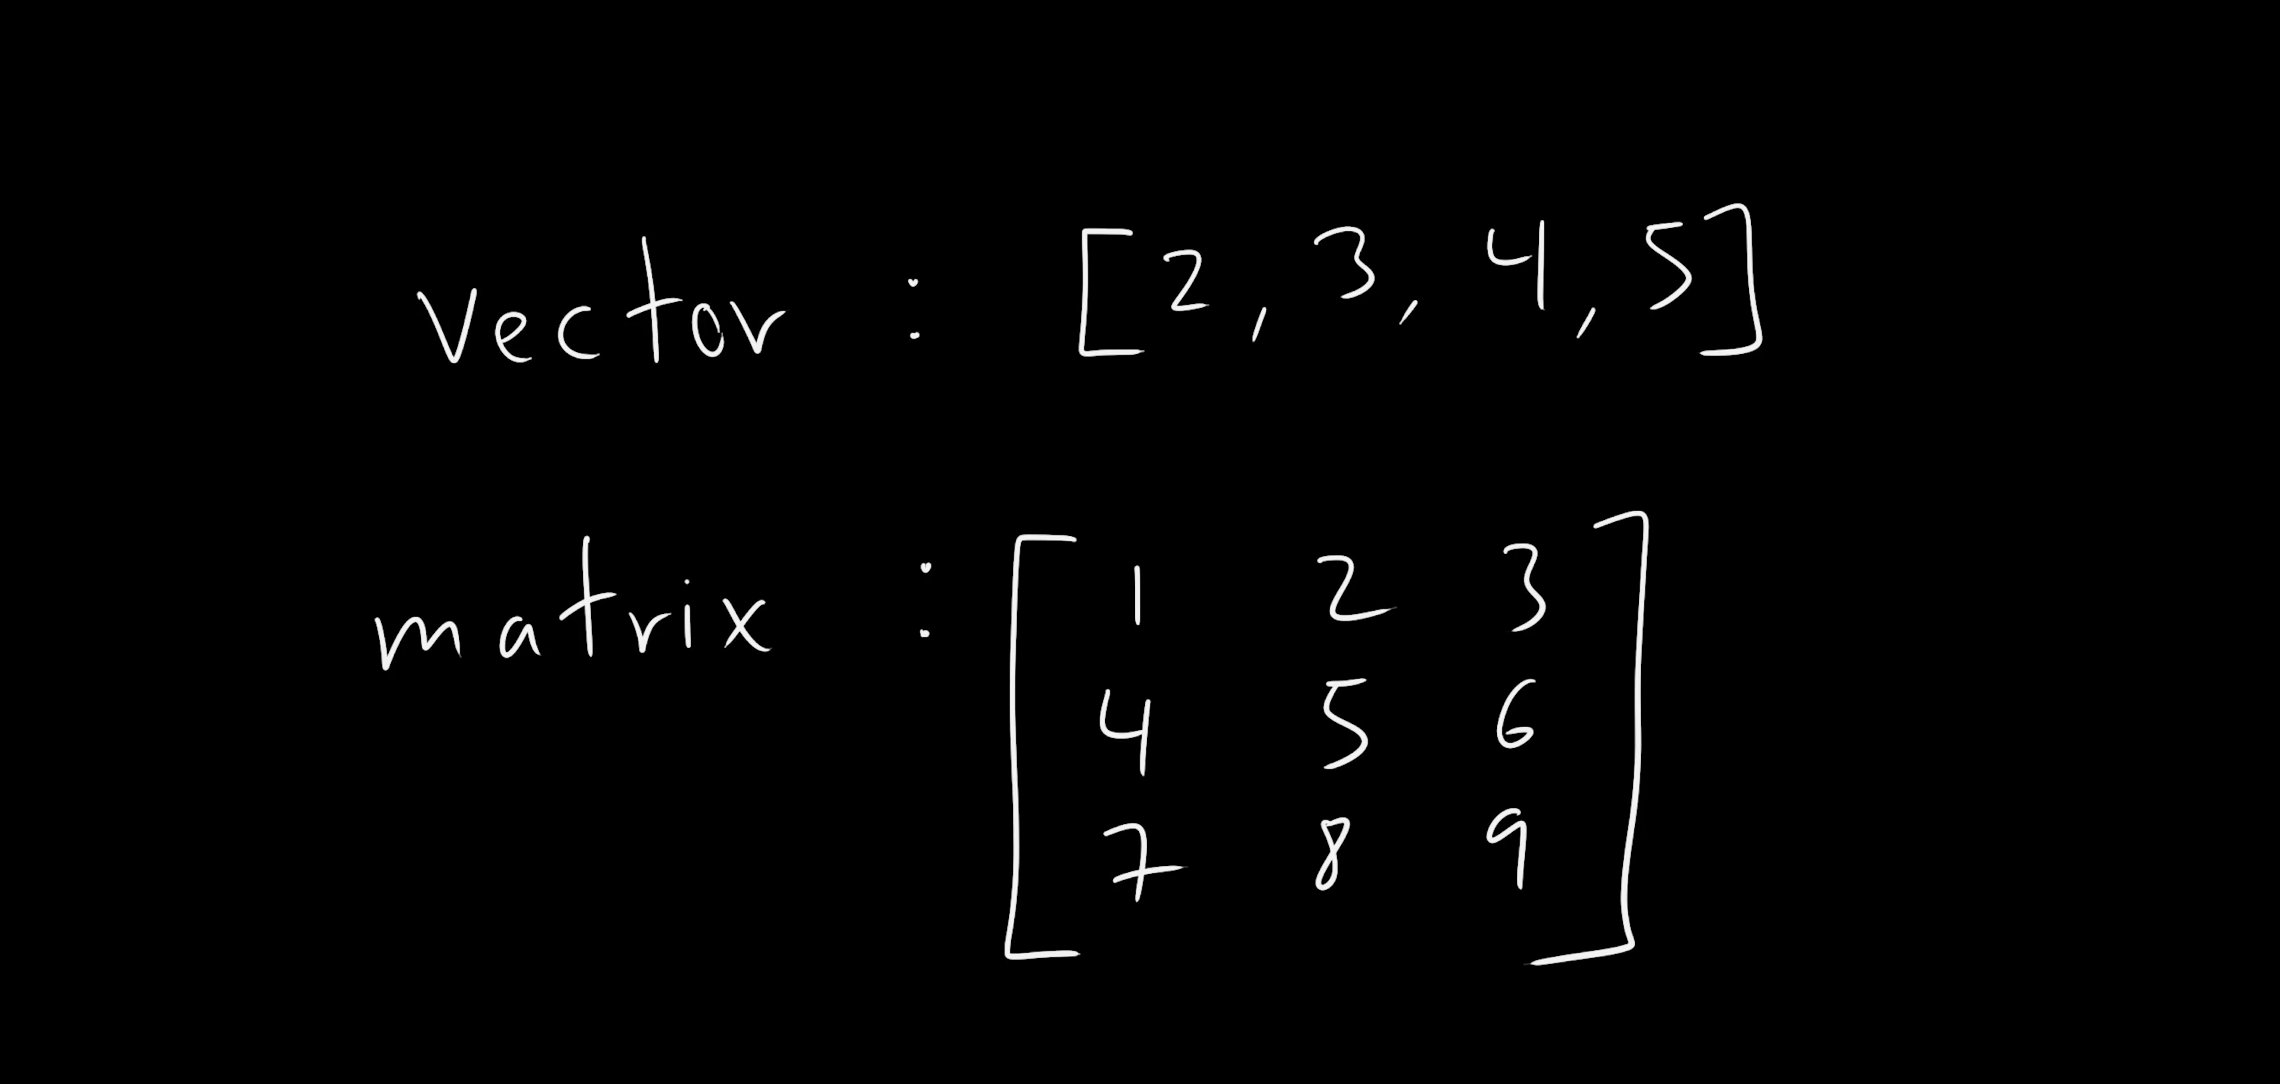 vector : [2, 3, 4, 5]
matrix : [1 2 3
4 5 6
7 8 9]